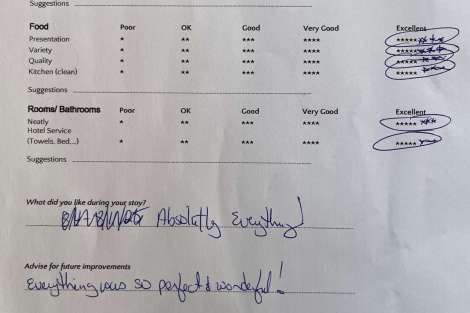 Suggestions
Food Poor OK Good Very Good Excellent
Presentation * ** *** **** ***** ***
Variety * ** *** **** ***** ***
Quality * ** *** **** ***** ***
Kitchen (clean) * ** *** **** ***** ***
Suggestions
Rooms/ Bathrooms Poor OK Good Very Good Excellent
Neatly * ** *** **** ***** ***
Hotel Service
(Towels. Bed...) * ** *** **** *****
Suggestions
What did you like during your stay?
Absolutly Everything!
Advise for future improvements
Everything was so perfect & wonderful!